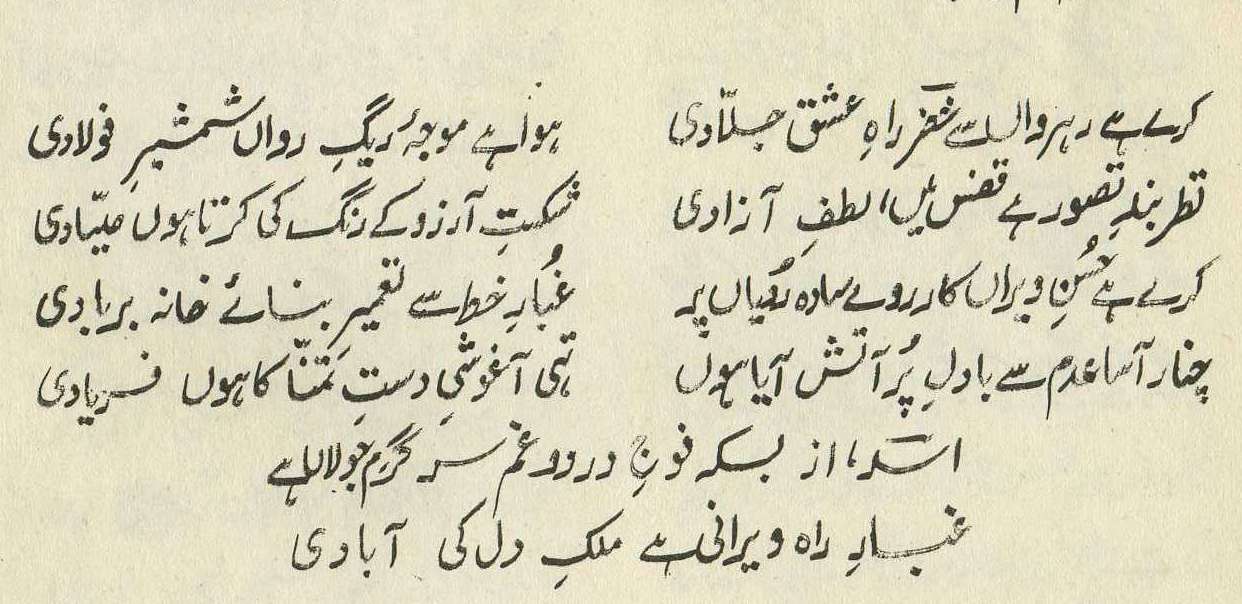 کرے ہے رہرواں سے خضرِ راہِ عشق جلّادی ہوا ہے موجۂ ریگِ رواں شمشیرِ فولادی
نظر بندِ تصور ہے قفس میں، لطفِ آزادی شکستِ آرزو کے رنگ کی کرتا ہوں صیّادی
کرے ہے حُسنِ ویراں کار روئے سادہ رُویاں پر غُبارِ خط سے تعمیرِ بنائے خانہ بربادی
چنار آسا عدم سے با دلِ پُر آتش آیا ہوں تہی آغوشیِ دستِ تمنّا کا ہوں فریادی
اسدؔ، از بسکہ فوجِ درد و غم سرگرم جولاں ہے
غبارِ راہ ویرانی ہے ملکِ دل کی آبادی